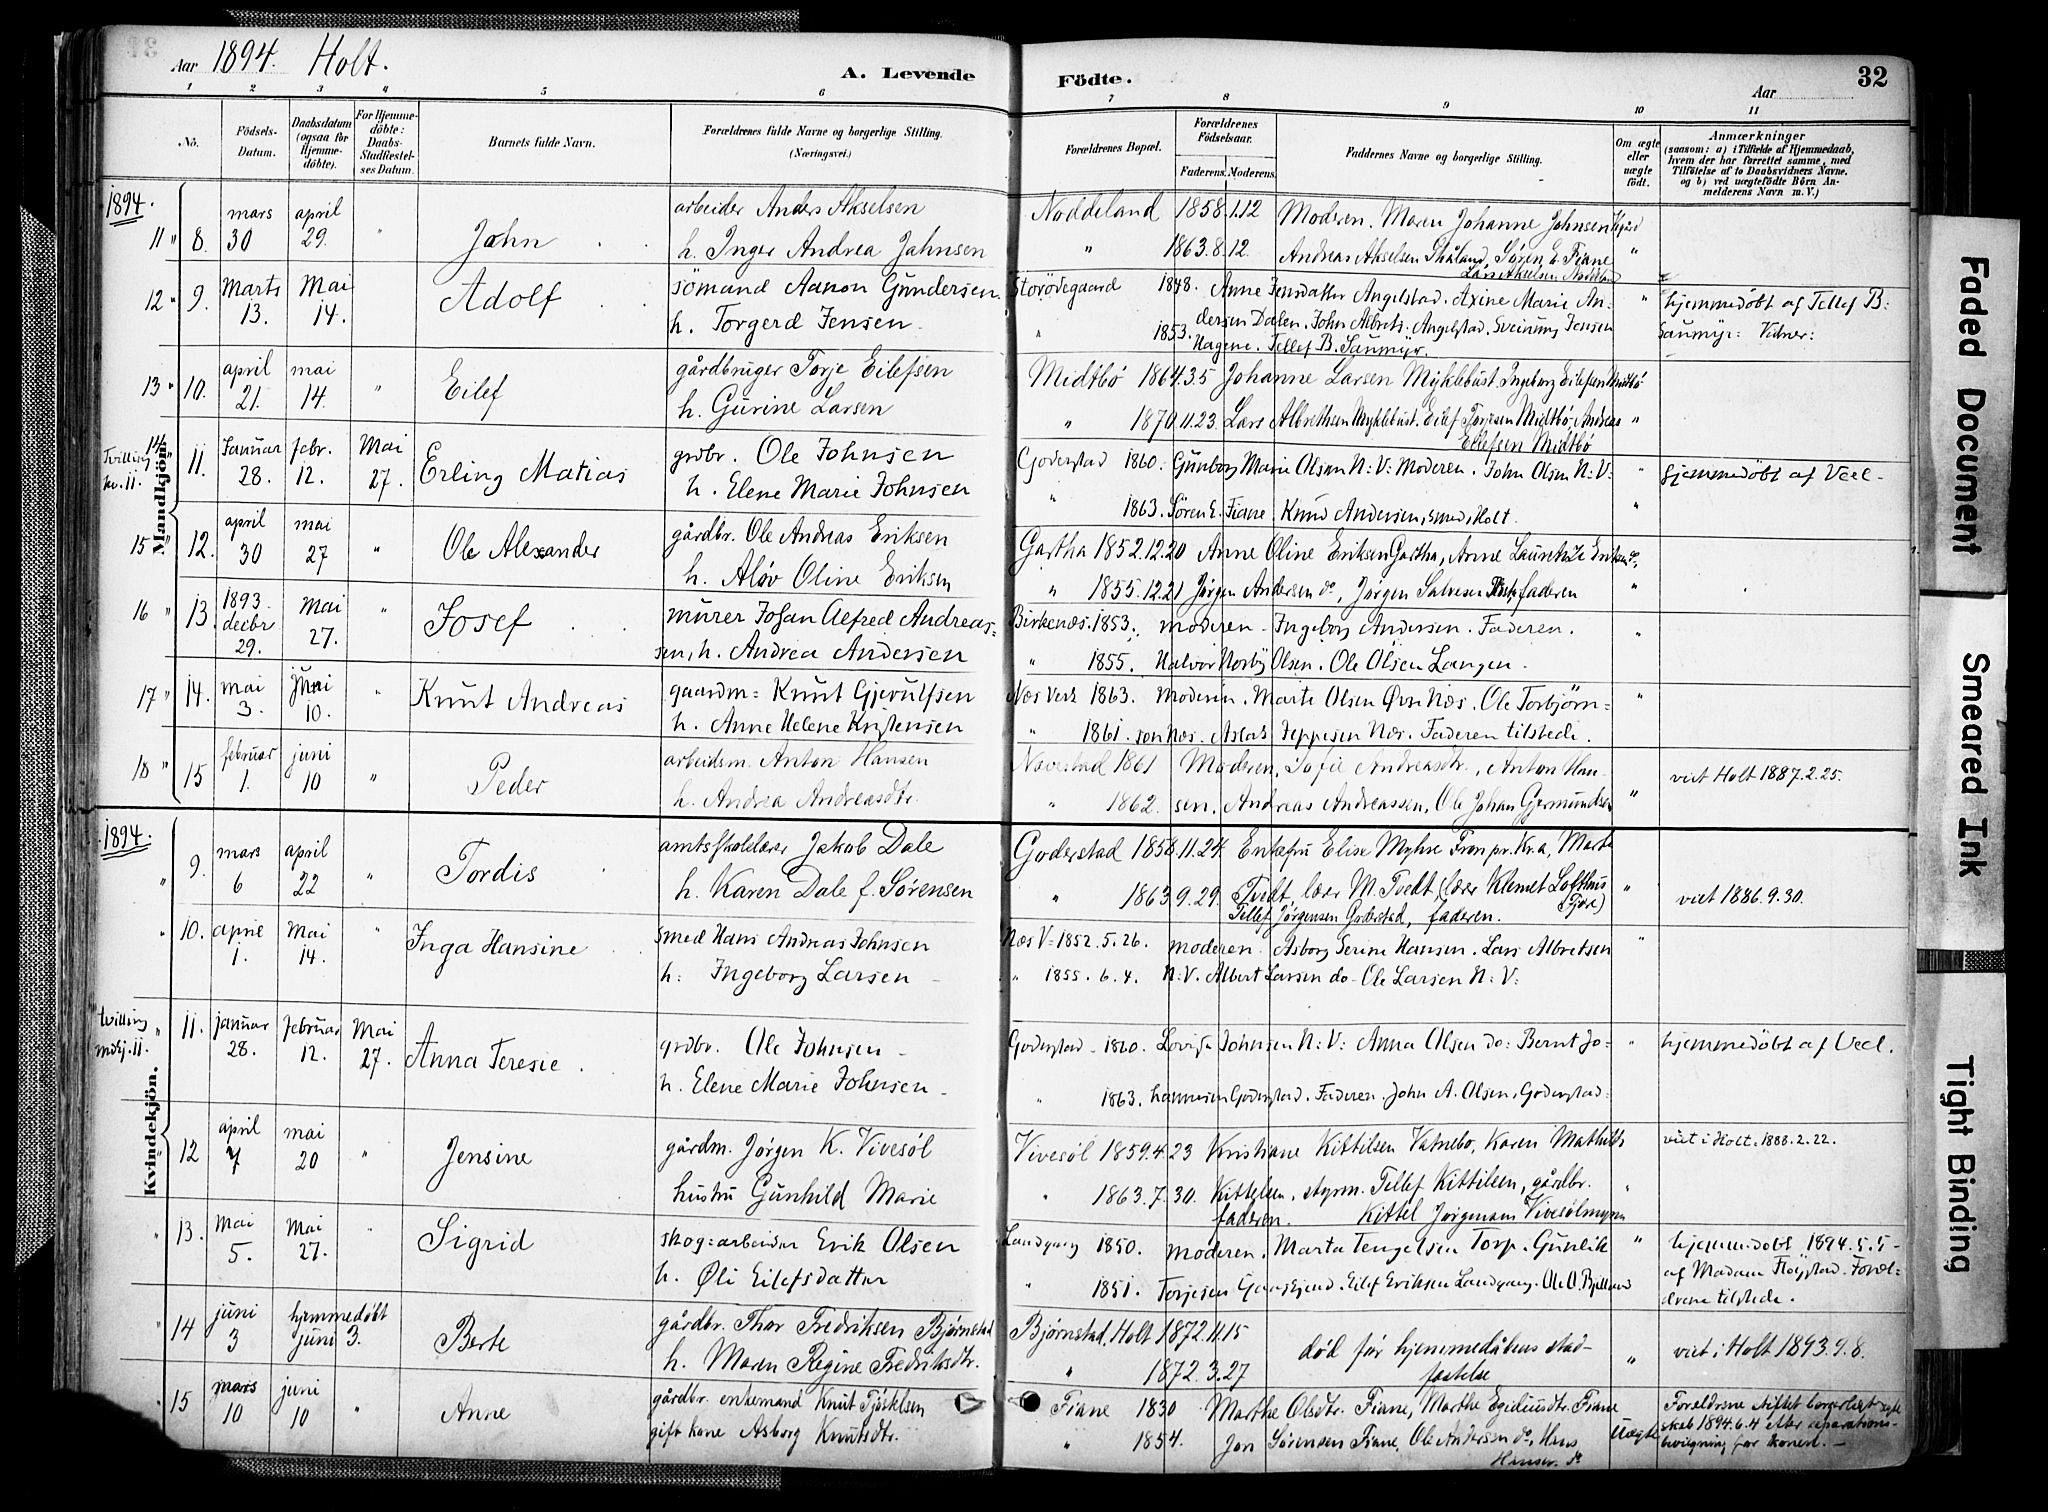 Aar 1894. Holt.
A. Levende Födte.
Aar
32
1 2 3 4 5 6 7 8 9 10 11
No.
Födsels-Datum.
Daabsdatum (ogsaa for Hjemme-döbte).
For Hjemme-döbte: Daabs-Stadfæstel-ses Datum.
Barnets fulde Navn.
Forældrenes fulde Navne og borgerlige Stilling. (Næringsvei.)
Forældrenes Bopæl.
Forældrenes Födselsaar.
Faderens. Moderens.
Faddernes Navne og borgerlige Stilling.
Om ægte eller uægte födt.
Anmærkninger
(saasom: a) i Tilfælde af Hjemmedaab, hvem der har forrettet samme, med Tilföielse af to Daabsvidners Navne. og b) ved uægtefödte Börn Anmelderens Navn m. V.)
1894.
Mandkjön.
11 " 8. mars 30 april 29. " John
arbeider Anders Akselsen
h. Inger Andrea Jahnsen
Noddeland 1858.1.12 Moderen. Maren Johanne Johnsen
" 1863.8.12. Andreas Akselsen Skåland, Søren E. Fiane "
12 " 9. Marts 13. Mai 14. Adolf
sömand Aanon Gundersen.
h. Torgerd Jensen.
Storødegaard 1848. Anne Jensdatter Angelstad. Axine Marie An-
" 1853. dersen Dalen. John Albrets. Angelstad. Sveinung Jensen
Hagene. Tellef B. Saumyr.
" hjemmedøbt af Tellef B:
Saumyr: Vidner:
13 " 10. april 21. mai 14. " Eilef
gårdbruger Torje Eilefsen
h. Gurine Larsen
Midtbö 1864.3.5 Johanne Larsen Myklebust. Ingeborg Eilefsen Midtbö
" 1870.11.23. Lars Albrethsen Myklebust. Eilef Torjesen Midtbö, Andreas "
Eilefsen Midtbö
14 " Tvilling kv. 11. 11. Januar 28. febr. 12. Mai 27. Erling Matias
grdbr. Ole Johnsen
h. Elene Marie Johnsen
Goderstad 1860. Gunborg Marie Olsen N: V: Moderen. John Olsen N: V: " hjemmedöbt af Vedl.
" 1863. Sören E. Fiane. Knud Andersen, smed, Holt. "
15 " 12. april 30 mai 27 " Ole Alexander
gårdbr. Ole Andreas Eriksen
h. Aløv Oline Eriksen
Gartha 1852.12.20 Anne Oline Eriksen Gartha,
" 1855.12.21 Jørgen Andersen do, Jørgen Salvesen faderen "
16 " 13 1893 decbr 29. Mai 27. " Josef
murer Johan Alfred Andreas-
sen, h. Andrea Andersen
Birkenæs. 1853. moderen. Ingeborg Andersen. Faderen.
" 1855. Halvor Norby Olsen. Ole Olsen Langen. "
17 " 14. mai 3. Juni 10. " Knut Andreas
gaardm= Knut Gjevulfsen
h. Anne Helene Kristensen
Næs Verk 1863. Moderen. Marte Olsen Øvre Næs. Ole Torbjörn= "
" 1861. son Næs. Aslak Jeppesen Næs. Faderen tilstede.
18 " 15 februar 1. juni 10 " Peder
arbeidsm. Anton Hansen
h. Andrea Andreasdtr.
Navestad 1861 Moderen, Sofie Andreasdtr., Anton Han-
" 1862. sen. Andreas Andreassen, Ole Johan Germundsen "
viet Holt 1887.2.25.
1894.
Kvindekjön.
" 9. mars 6 april 22 " Tordis
amtsskolelærer Jakob Dale
h. Karen Dale f. Sørensen
Goderstad 1858.11.24. Enkefru Elise Myhre Fron pr. Kr.a, Marte
" 1863.9.29. Tvedt, lærer M. Tvedt, lærer Klemet Lofthus "
Tellef Jørgensen Goderstad, faderen.
viet 1886.9.30.
" 10. april 1. Mai 14. Inga Hansine
smed Hans Andreas Johnsen
h: Ingeborg Larsen
Næs V= 1852.5.26. moderen. Asborg Serine Hansen. Lars Albretsen "
" 1855.6.4. N:V. Albert Larsen do- Ole Larsen N: V:
tvilling mdkj. 11. " 11. januar 28. februar 12. Mai 27. Anna Teresie
grdbr. Ole Johnsen
h. Elene Marie Johnsen
Goderstad 1860. Lovise Johnsen N: V: Anna Olsen do: Bernt Jo= " hjemmedöbt af Vedl.
" 1863. hannesen Goderstad. Faderen. John A. Olsen, Goderstad=
" 12 april 7 mai 20 " Jensine
gårdm. Jørgen K. Vivesøl
hustru Gunhild Marie
Vivesøl 1859.4.23 Kristiane Kittilsen Vatnebo, Karen Mathilde
" 1863.7.30. Kittelsen, styrm. Tellef Kittilsen, gårdbr. "
faderen. Kittel Jørgensen Vivesølmyren
viet i Holt. 1888.2.22.
" 13. Mai 5. Mai 27. " Sigrid
skog=arbeider Erik Olsen
h. Øli Eilefsdatter
Landgang 1850. moderen. Marta Tengelsen Torp. Gunlik "
" 1851. Torjesen Eilef Eriksen Landgang. Ole O.
hjemmedøbt 1894.5.5-
af Madam Fløystad. Foræl-
drene tilstede.
" 14 juni 3 hjemmedøbt juni 3. Berte
gårdbr. Thor Fredriksen Bjørnstad
h. Maren Regine Fredriksdtr.
Bjørnstad, Holt 1872.11.15 død før hjemmedåbens stad-
" 1872.3.27 fæstelse "
viet i Holt 1893.9.8.
" 15 mars 10 juni 10 " Anne
gårdbr. enkemand Knut Tjöstelsen
gift kone Asborg Knutsdtr.
Fiane 1830 Marthe Olsdtr. Fiane, Marthe Egelundtr. Fiane
" 1854. Jon Sörensen Fiane, Ole Andersen do, Hans
Hansen. do
Uægte
Forældrene stiftet borgerligt ægte
skab 1894.6.4 efter separations-
bevilgning for konen.-
Faded Document
Smeared Ink
Tight Binding